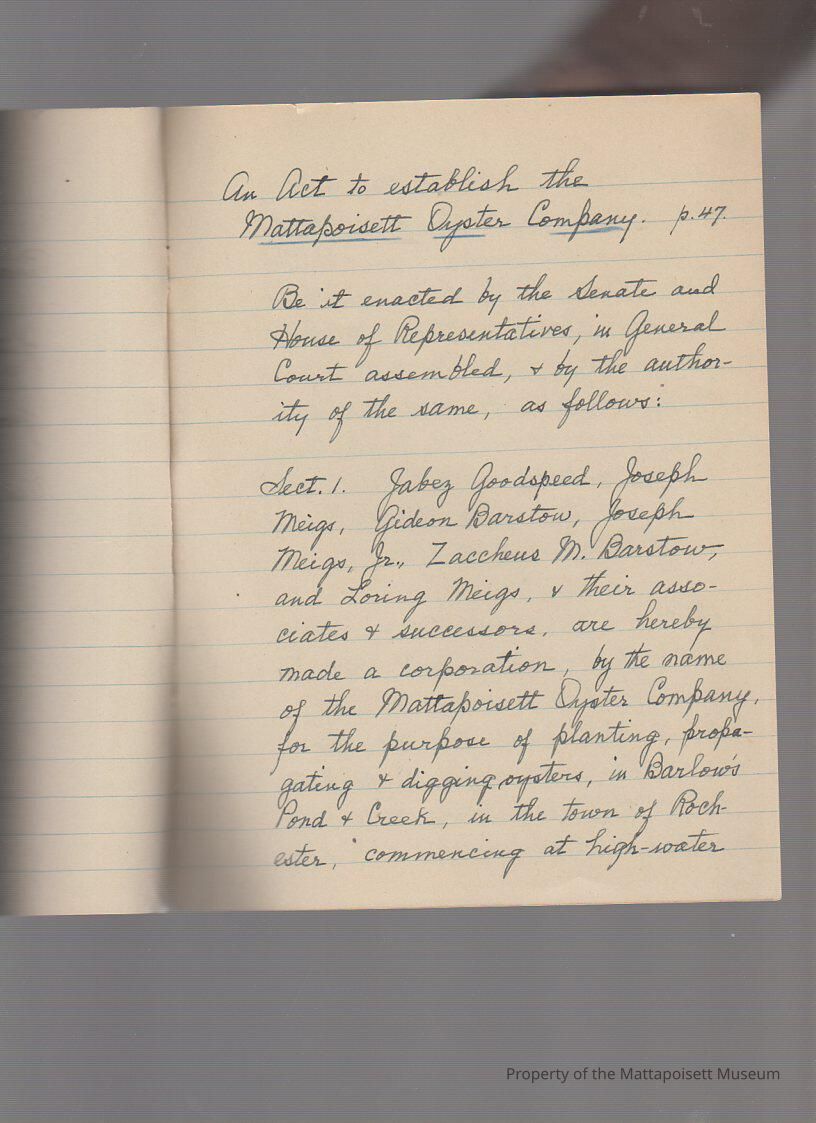 An Act to establish the
Mattapoisett Oyster Company. p.47.
Be it enacted by the Senate and
House of Representatives, in General
Court assembled, & by the author-
ity of the same, as follows:
Sect. 1. Jabez Goodspeed, Joseph
Meigs, Gideon Barstow, Joseph
Meigs, Jr., Zaccheus M. Barstow,
and Loring Meigs, & their asso-
ciates & successors, are hereby
made a corporation, by the name
of the Mattapoisett Oyster Company,
for the purpose of planting, propa-
gating & digging oysters, in Barlow's
Pond & Creek, in the town of Roch-
ester, commencing at high-water
Property of the Mattapoisett Museum